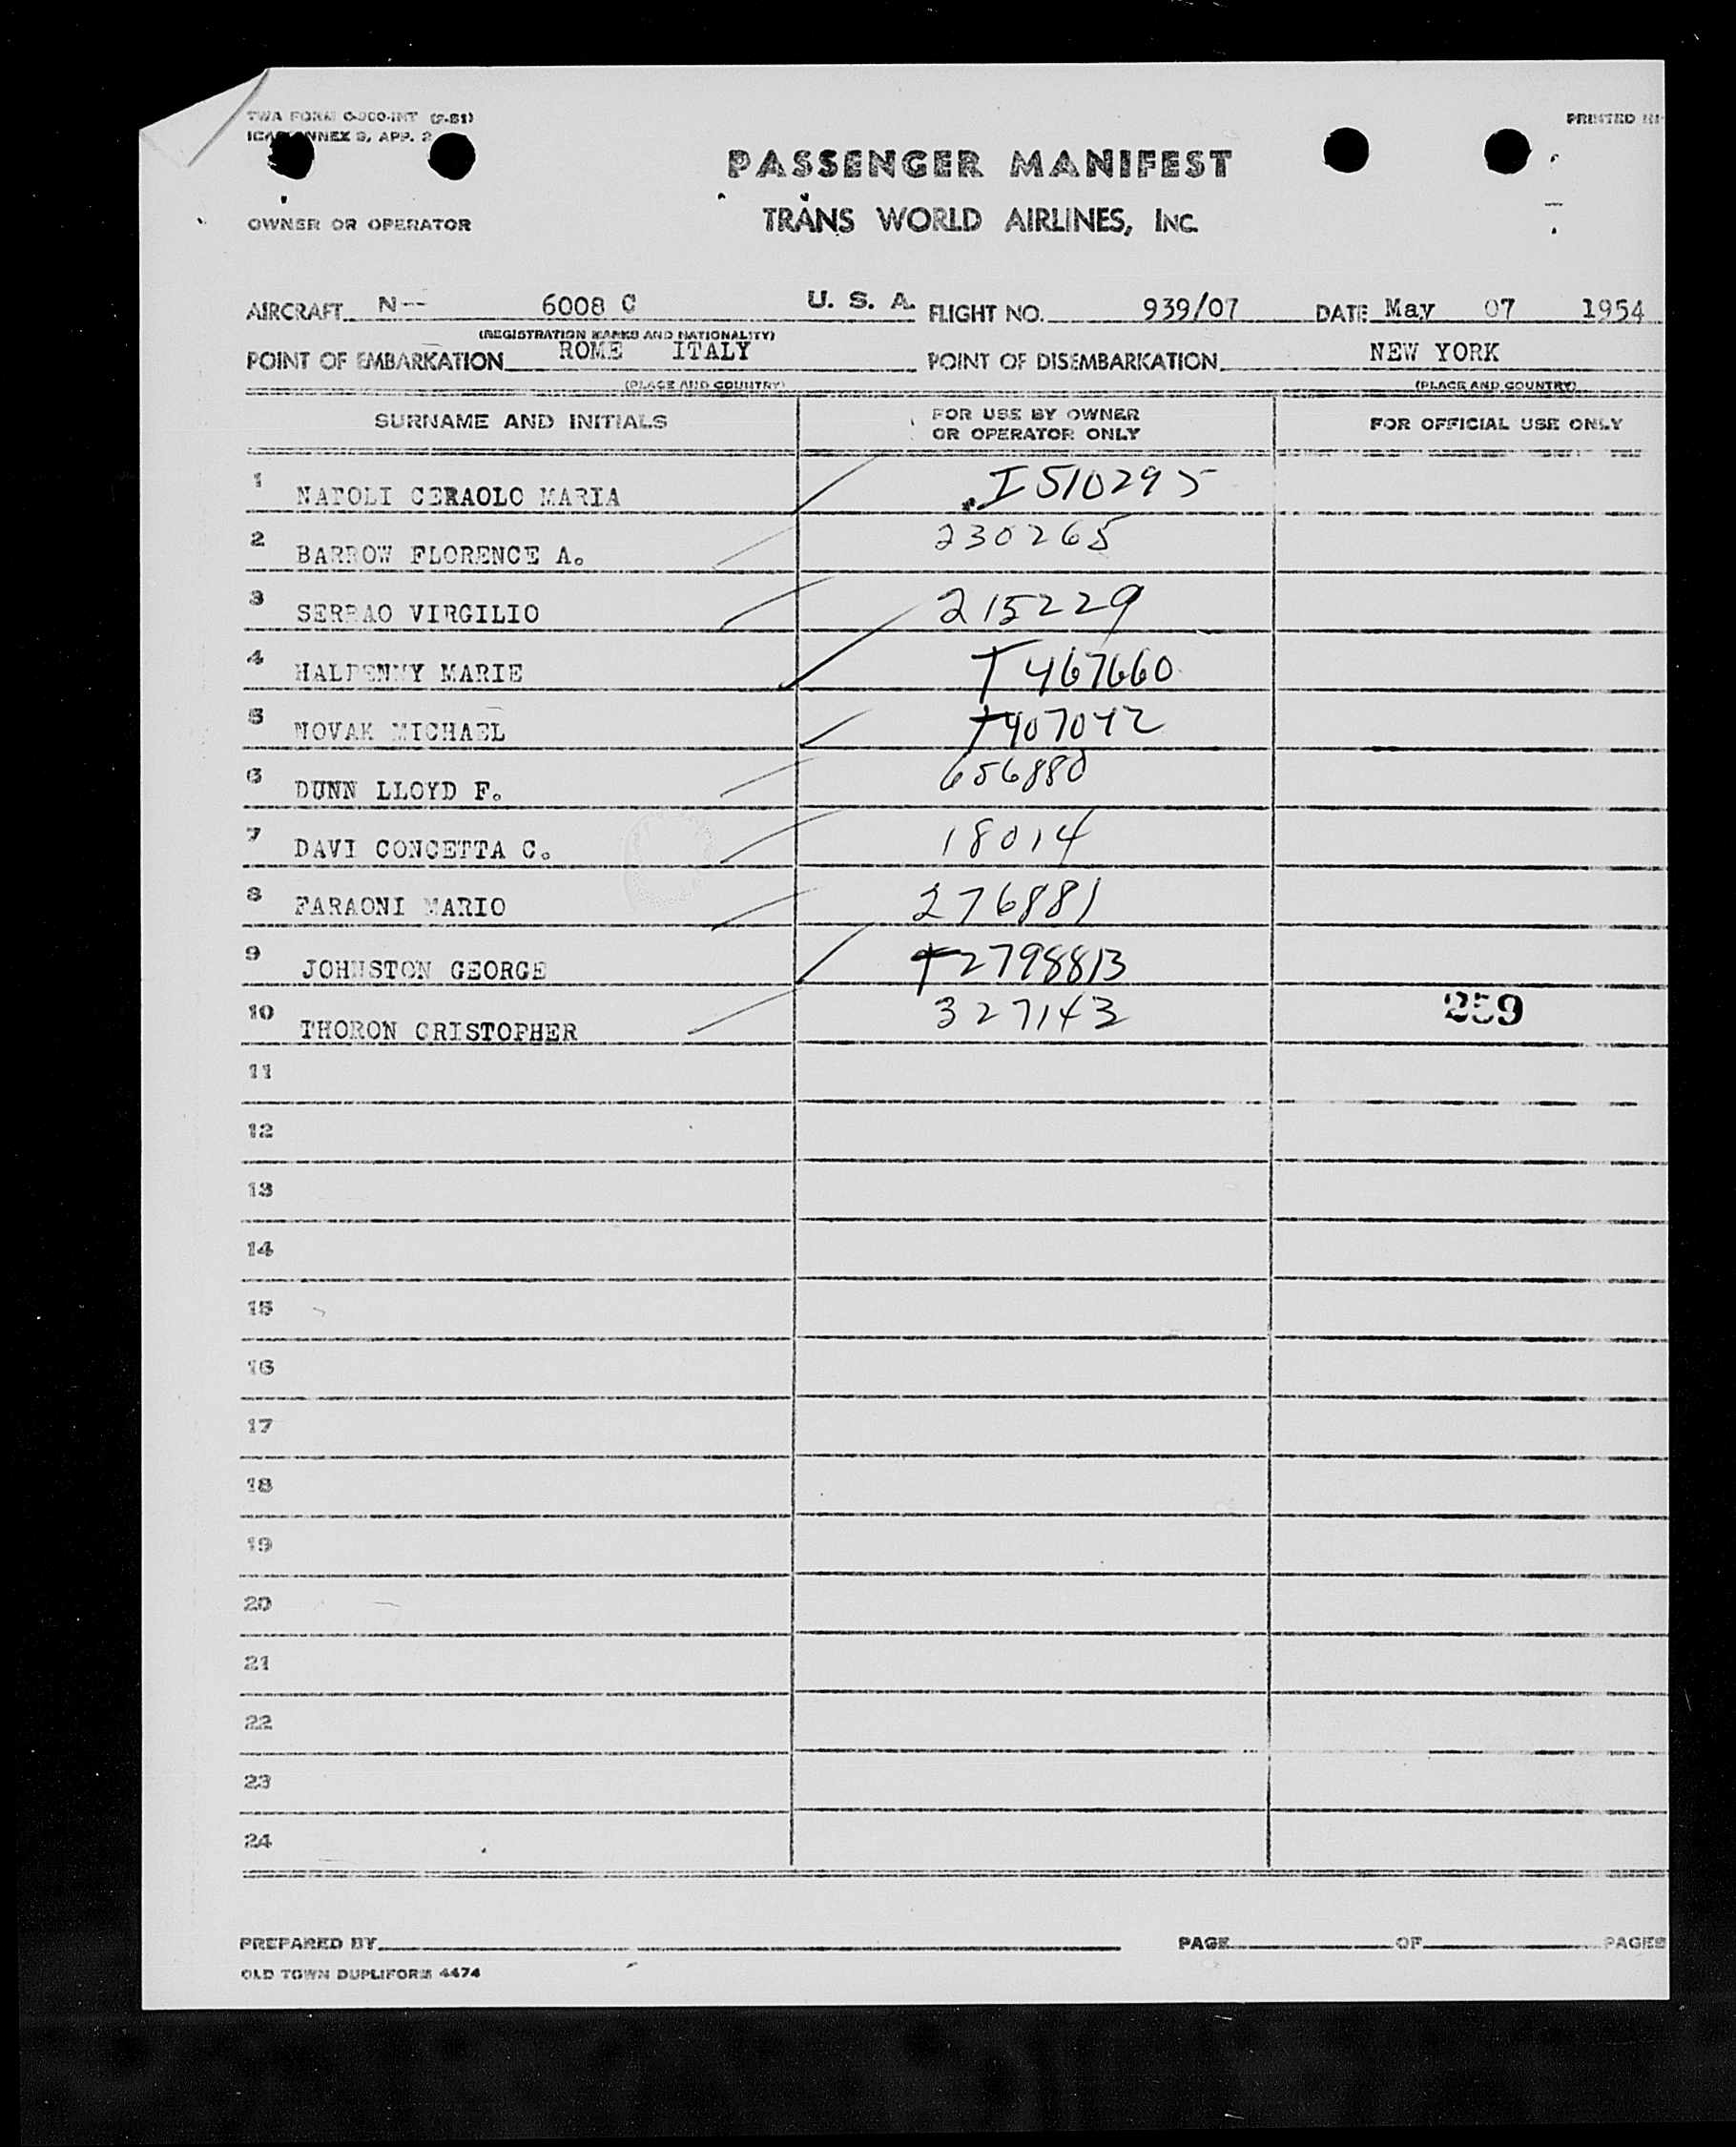 TWA FORM O-900-INT (2-51)
ICAO ANNEX 9, APP. 2
PRINTED IN
PASSENGER MANIFEST
OWNER OR OPERATOR
TRANS WORLD AIRLINES, INC.
AIRCRAFT N-- 6008 C U. S. A. FLIGHT NO. 939/07 DATE May 07 1954
(REGISTRATION MARKS AND NATIONALITY)
POINT OF EMBARKATION ROME ITALY POINT OF DISEMBARKATION NEW YORK
(PLACE AND COUNTRY) (PLACE AND COUNTRY)
SURNAME AND INITIALS FOR USE BY OWNER OR OPERATOR ONLY FOR OFFICIAL USE ONLY
1 NAPOLI CERAOLO MARIA I 510295
2 BARROW FLORENCE A. 230265
3 SERRAO VIRGILIO 215229
4 HALPENNY MARIE T 467660
5 NOVAK MICHAEL T407042
6 DUNN LLOYD F. 656880
7 DAVI CONCETTA C. 18014
8 FARAONI MARIO 276881
9 JOHNSTON GEORGE T2798813
10 THORON CRISTOPHER 327143 259
11
12
13
14
15
16
17
18
19
20
21
22
23
24
PREPARED BY PAGE OF PAGES
OLD TOWN DUPLIFORM 4474